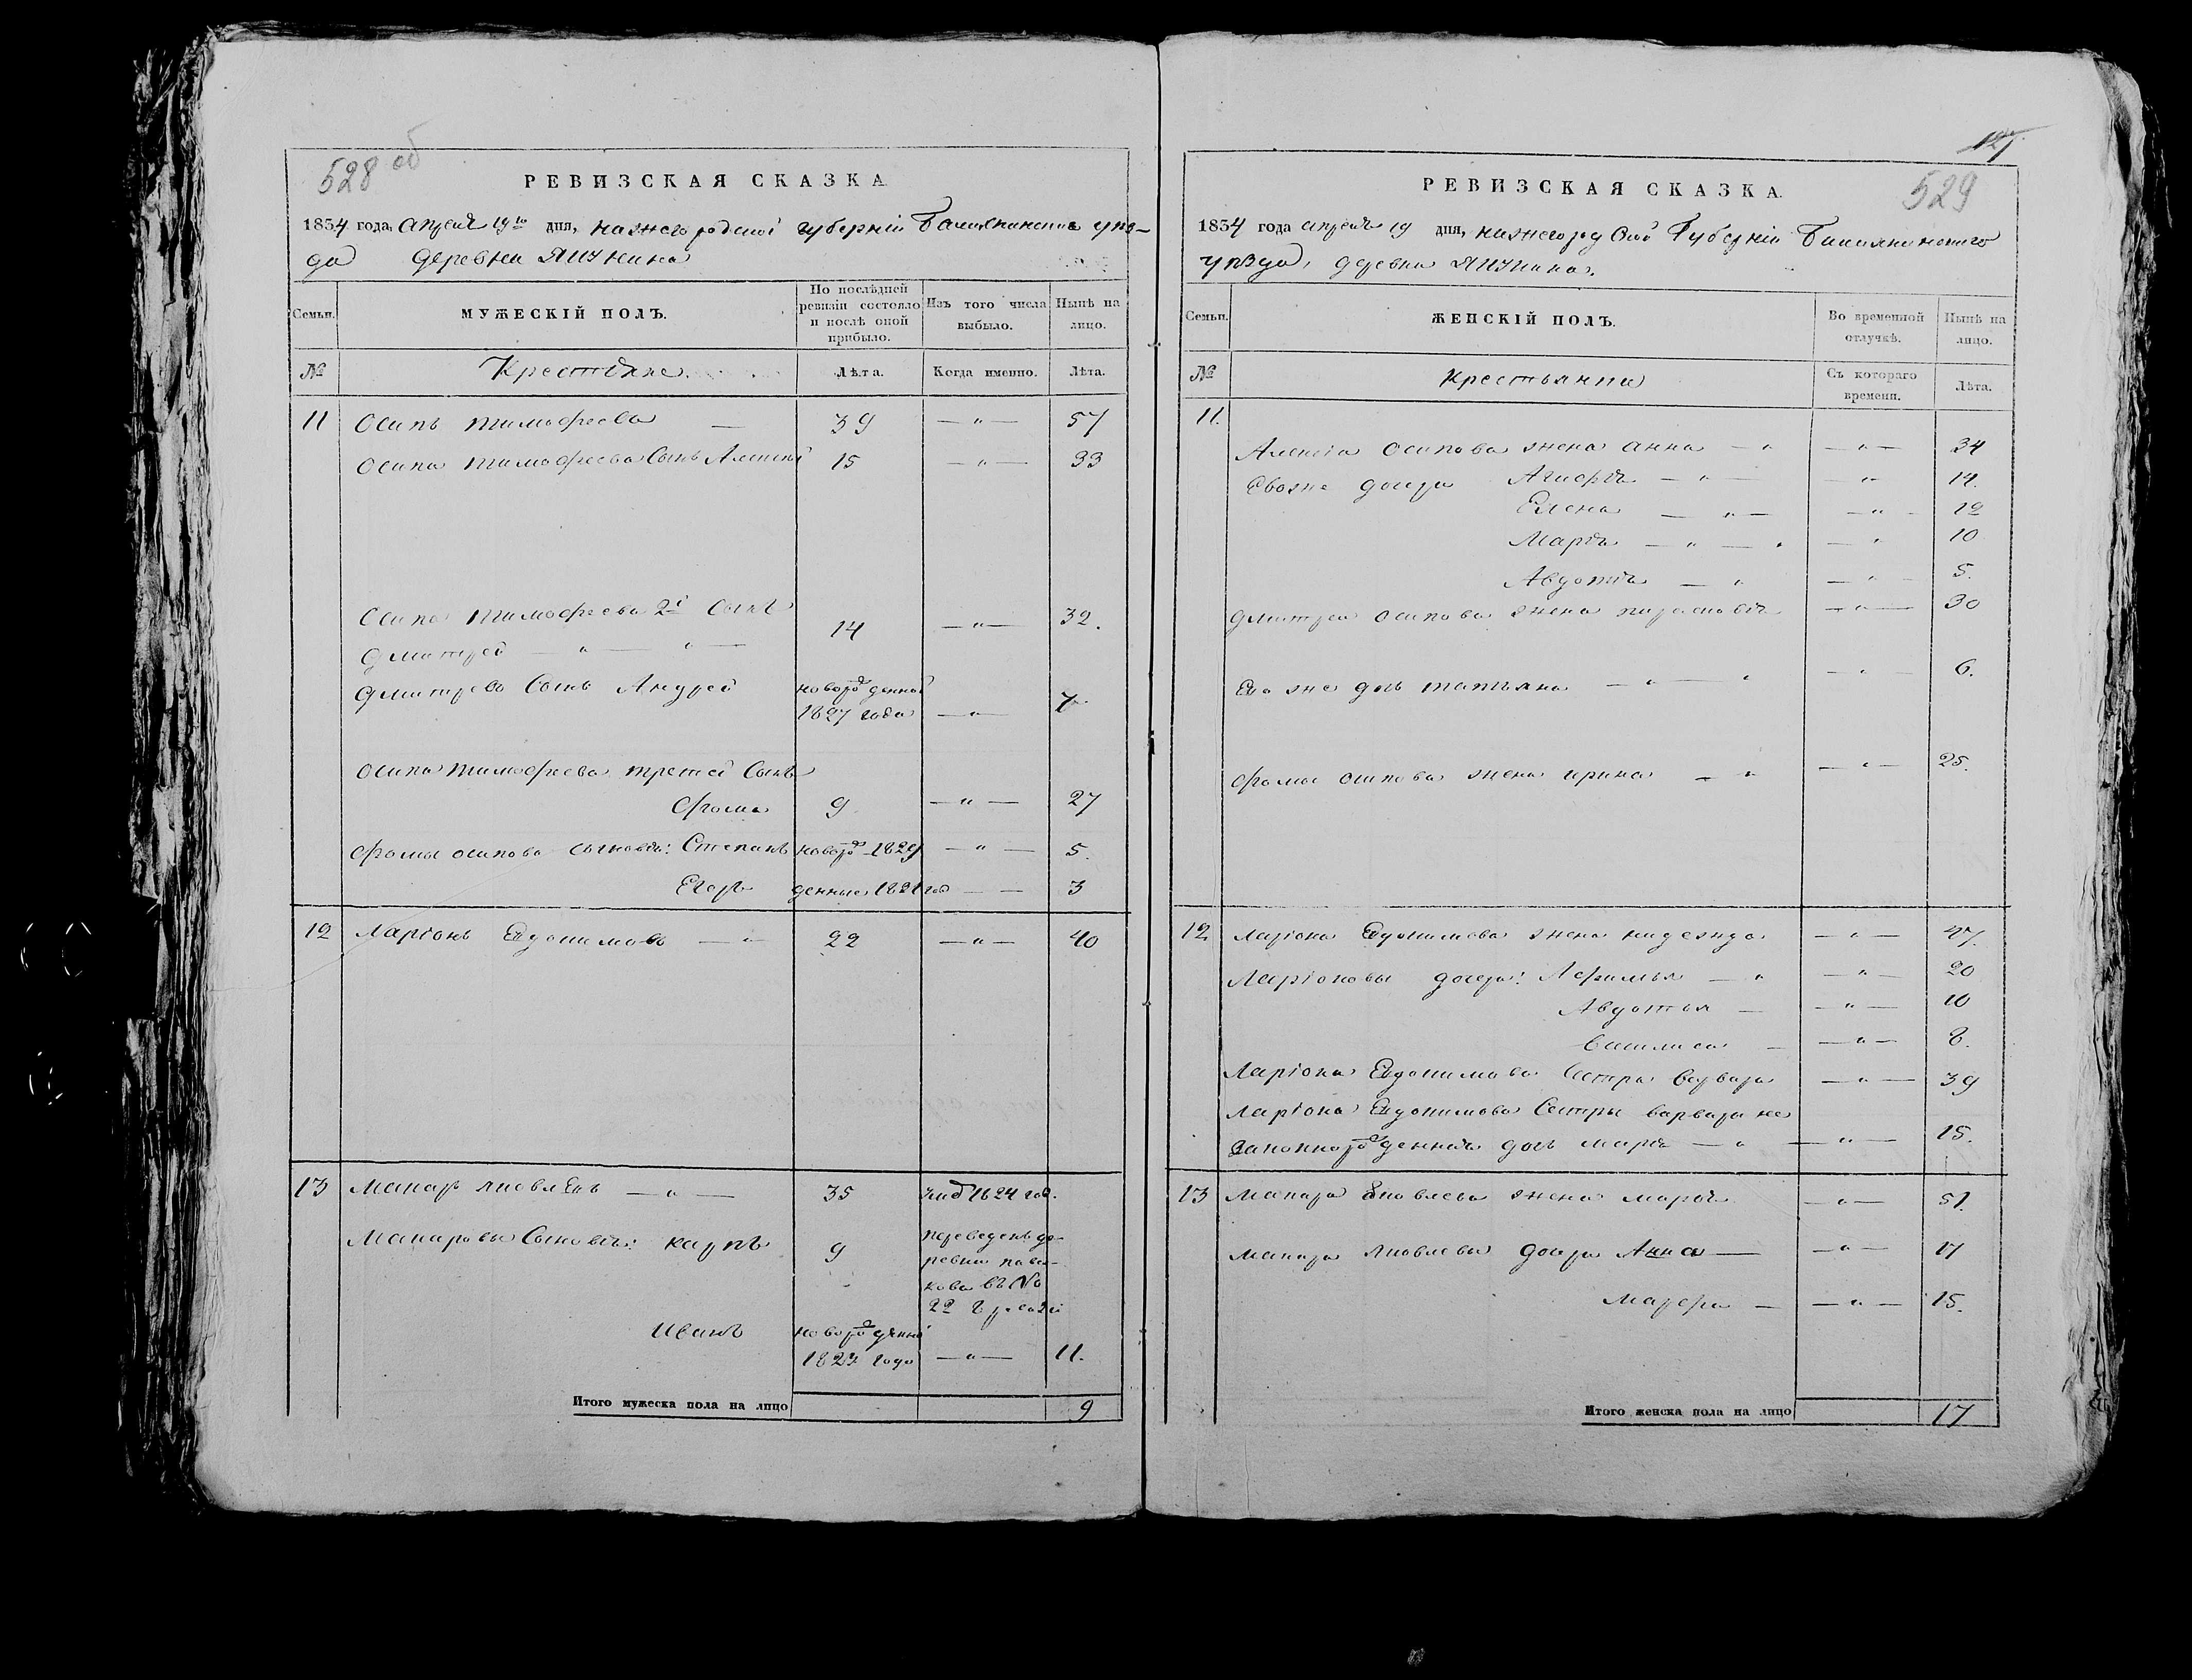 528 об
РЕВИЗСКАЯ СКАЗКА
1834 года, апреля 19го дня, нижегородской губерніи Балахнинскаго уѣз-
да деревни
Семьи.
МУЖЕСКІЙ ПОЛЪ.
По послѣдней ревизіи состояло и послѣ оной прибыло.
Изъ того числа выбыло.
Нынѣ на лицо.
№
Крестьяне.
Лѣта.
Когда именно.
Лѣта.
11 Осипъ тимофеевъ — 39 — " — 57
Осипа тимофеева Сынъ Алексей 15 — " — 33
Осипа тимофеева 2й Сынъ
Дмитрей — " — " — 14 — " — 32.
Дмитрева Сынъ Андрей новорожденной
1827 года — " — 7
Осипа тимофеева третей Сынъ
Фома 9 — " — 27
Фомы осипова сыновья: Степанъ новорож- 1829 — " — 5.
Егоръ денные 1831 год — — 3
12 Ларіонъ Евдокимовъ — " — 22 — " — 40
13 Макаръ яковлевъ — " — 35 1824 год.
Макаровы Сыновья: карпъ 9 переведенъ де-
ревни
кова въ №
22
Иванъ новорожденной
1823 года — " — 11.
Итого мужеска пола на лицо 9
529
РЕВИЗСКАЯ СКАЗКА.
1834 года апреля 19 дня, нижегородской Губерніи Балахнинскаго
уѣзда, деревни
Семьи.
ЖЕНСКІЙ ПОЛЪ.
Во временной отлучкѣ.
Нынѣ на лицо.
№
крестьянки
Съ котораго времени.
Лѣта.
11.
Алексѣя осипова жена анна — " — " — 34
Евоже дочери — " — " 14.
Елена — " — — " — 12
Марія — " — " — " 10
Авдотья — " — " — 5.
дмитрея осипова жена — " — 30
Его же дочь татьяна — " — " — " — 6.
фомы осипова жена ирина — " — " — 25.
12 Ларіона Евдокимова жена надежда — " — 47.
Ларіоновы дочери: Афимья — " — " — 20
Авдотья — — " — 10
Василиса — — " — 8.
Ларіона Евдокимова Сестра варвара — " — 39
Ларіона Евдокимова Сестры варвары не
законнорожденная дочь марья — " — " — 15.
13 Макара Яковлева жена марья — " — 51.
Макара Яковлева дочери Анна — — " — 17
Марфа — — " — 15.
Итого женска пола на лицо 17